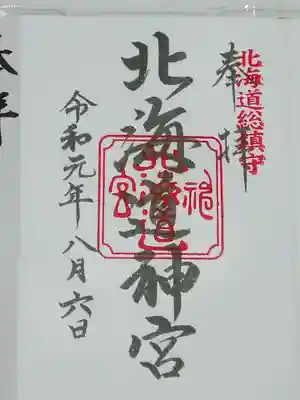 奉拝
北海道総鎮守
北海道神宮
令和元年八月六日